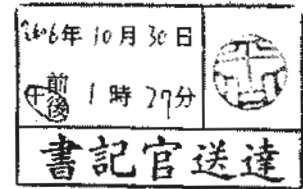 2006年10月30日
午前後 1時27分
書記官送達